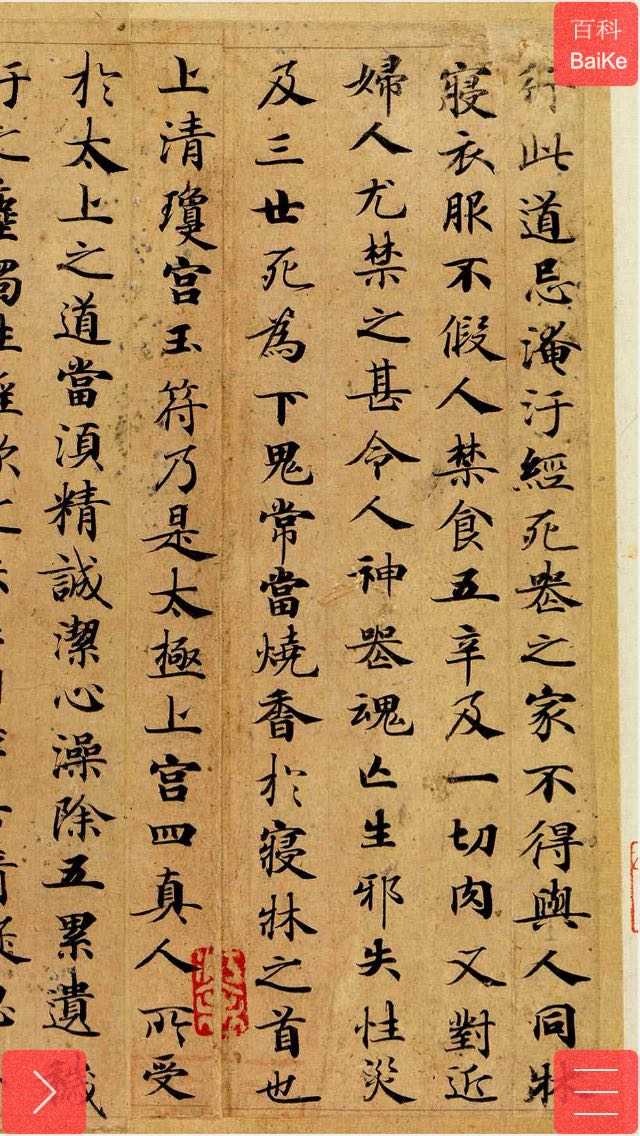 百科
BaiKe
行此道忌淹汙經死喪之家不得與人同牀
寢衣服不假人禁食五辛及一切肉又對近
婦人尤禁之甚令人神喪魂亡生邪失性災
及三世死為下鬼常當燒香於寢牀之首也
上清瓊宮玉符乃是太極上宮四真人所受
於太上之道當須精誠潔心澡除五累遺穢